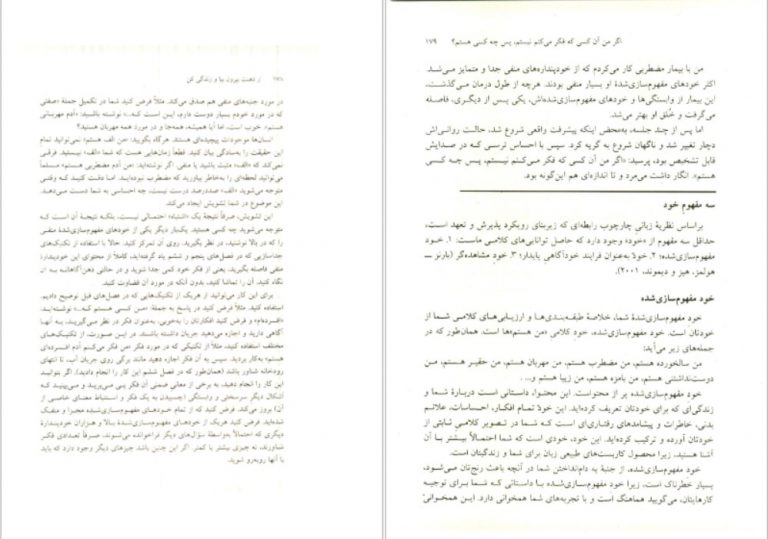 ۱۷۸ از ذهنت بیرون بیا و زندگی کن
در مورد جنبه‌های منفی هم صدق می‌کند. مثلاً فرض کنید شما در تکمیل جملهٔ «صفتی
که در مورد خودم بسیار دوست دارم، این است که...» نوشته باشید: «آدم مهربانی
هستم» خوب است، اما آیا همیشه، همه‌جا و در مورد همه مهربان هستید؟
انسان‌ها موجودات پیچیده‌ای هستند. هرگاه بگویید: «من الف هستم» نمی‌توانید تمام
این حقیقت را به‌سادگی بیان کنید. قطعاً زمان‌هایی هست که شما «الف» نیستید. فرقی
نمی‌کند که «الف» مثبت باشید یا منفی. اگر نوشته‌اید: «من آدم مضطربی هستم» مسلماً
می‌توانید لحظه‌ای را به‌خاطر بیاورید که مضطرب نبوده‌اید. اما دقت کنید که وقتی
متوجه می‌شوید «الف» صددرصد درست نیست، چه احساسی به شما دست می‌دهد.
این موضوع در شما تشویش ایجاد می‌کند.
این تشویش، صرفاً نتیجهٔ یک «اشتباه» احتمالی نیست، بلکه نتیجهٔ آن است که
متوجه می‌شوید چه کسی هستید. یک‌بار دیگر یکی از خودهای مفهوم‌سازی‌شدهٔ منفی
را که در بالا نوشتید، در نظر بگیرید. روی آن تمرکز کنید. حالا با استفاده از تکنیک‌های
جداسازیی که در فصل‌های پنجم و ششم یاد گرفته‌اید، کاملاً از محتوای این خودپندارهٔ
منفی فاصله بگیرید. یعنی از فکر خود کمی جدا شوید و در حالتی ذهن‌آگاهانه به آن
نگاه کنید. آن را تماشا کنید، بدون آنکه در مورد آن قضاوت کنید.
برای این کار می‌توانید از هریک از تکنیک‌هایی که در فصل‌های قبل توضیح دادیم،
استفاده کنید. مثلاً فرض کنید در پاسخ به جملهٔ: «من کسی هستم که...» نوشته‌اید:
«افسرده‌ام» و فرض کنید افکارتان را به‌خوبی، به‌عنوان فکر در نظر می‌گیرید، به آنها
آگاهی دارید و اجازه می‌دهید جریان داشته باشند. در این صورت، از تکنیک‌های
مختلف استفاده کنید، مثلاً از تکنیکی که در مورد فکر «من فکر می‌کنم آدم افسرده‌ای
هستم» به‌کار بردید. سپس به آن فکر اجازه دهید مانند برگی روی جریان آب، تا انتهای
رودخانه شناور باشد (همان‌طور که در فصل ششم این کار را انجام دادید). اگر بتوانید
این کار را انجام دهید، به برخی از معانی ضمنی آن فکر پی می‌برید و می‌بینید که
اشکال دیگر سرسختی و وابستگی (چسبیدن به یک فکر و استنباط معنای خاصی از
آن) بروز می‌کند. فرض کنید که از تمام خودهای مفهوم‌سازی‌شدهٔ مجزا و منفک
شده‌اید. فرض کنید هریک از خودهای مفهوم‌سازی‌شدهٔ بالا و هزاران خودپندارهٔ
دیگری که احتمالاً به‌واسطهٔ سؤال‌های دیگر فراخوانده می‌شوند، صرفاً تعدادی فکر
شناورند، نه چیزی بیشتر یا کمتر. اگر این چنین باشد، چیزهای دیگر وجود دارد که باید
با آنها روبه‌رو شوید.
اگر من آن کسی که فکر می‌کنم نیستم، پس چه کسی هستم؟ ۱۷۹
من با بیمار مضطربی کار می‌کردم که از خودپنداره‌های منفی جدا و متمایز می‌شد.
اکثر خودهای مفهوم‌سازی‌شدهٔ او بسیار منفی بودند. هرچه از طول درمان می‌گذشت،
این بیمار از وابستگی‌ها و خودهای مفهوم‌سازی‌شده‌اش، یکی پس از دیگری، فاصله
می‌گرفت و خُلق او بهتر می‌شد.
اما پس از چند جلسه، به‌محض اینکه پیشرفت واقعی شروع شد، حالت روانی‌اش
دچار تغییر شد و ناگهان شروع به گریه کرد. سپس با احساس ترسی که در صدایش
قابل تشخیص بود، پرسید: «اگر من آن کسی که فکر می‌کنم نیستم، پس چه کسی
هستم». انگار داشت می‌مرد و تا اندازه‌ای هم این‌گونه بود.
سه مفهوم خود
براساس نظریهٔ زبانیِ چارچوب رابطه‌ای که زیربنای رویکرد پذیرش و تعهد است،
حداقل سه مفهوم از «خود» وجود دارد که حاصل توانایی‌های کلامی ماست: ۱. خود
مفهوم‌سازی‌شده؛ ۲. خود به‌عنوان فرایند خودآگاهی پایدار؛ ۳. خودِ مشاهده‌گر (بارنز ــ
هولمز، هیز و دیموند، ۲۰۰۱).
خود مفهوم‌سازی‌شده
خود مفهوم‌سازی‌شدهٔ شما، خلاصهٔ طبقه‌بندی‌ها و ارزیابی‌های کلامی شما از
خودتان است. خود مفهوم‌سازی‌شده، خود کلامیِ «من هستم»ها است. همان‌طور که در
جمله‌های زیر می‌آید:
من سالخورده هستم، من مضطرب هستم، من مهربان هستم، من حقیر هستم، من
دوست‌نداشتنی هستم، من بامزه هستم، من زیبا هستم و...
خود مفهوم‌سازی‌شده پر از محتواست. این محتوا، داستانی است دربارهٔ شما و
زندگی‌ای که برای خودتان تعریف کرده‌اید. این خود، تمام افکار، احساسات، علائم
بدنی، خاطرات و پیشامدهای رفتاری‌ای است که شما در تصویر کلامی ثابتی از
خودتان آورده و ترکیب کرده‌اید. این خود، خودی است که شما احتمالاً بیشتر با آن
آشنا هستید، زیرا محصول کاربست‌های طبیعی زبان برای شما و زندگیتان است.
خود مفهوم‌سازی‌شده، از جنبهٔ به دام‌انداختن شما در آنچه باعث رنج‌تان می‌شود،
بسیار خطرناک است، زیرا خود مفهوم‌سازی‌شده با داستانی که شما برای توجیه
کارهایتان، می‌گویید هماهنگ است و با تجربه‌های شما همخوانی دارد. این همخوانی